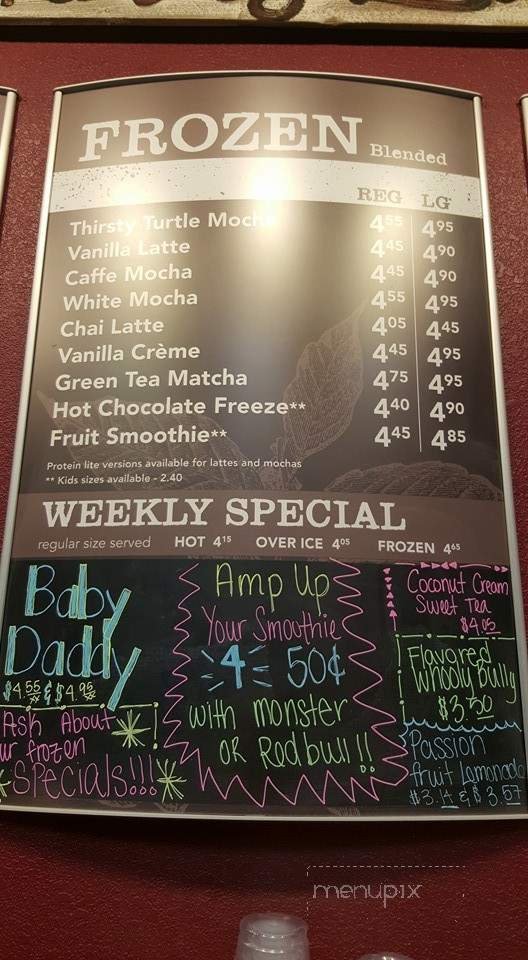 FROZEN Blended
REG LG
Thirsty Turtle Mocha 4⁵⁵ 4⁹⁵
Vanilla Latte 4⁴⁵ 4⁹⁰
Caffe Mocha 4⁴⁵ 4⁹⁰
White Mocha 4⁵⁵ 4⁹⁵
Chai Latte 4⁰⁵ 4⁴⁵
Vanilla Crème 4⁴⁵ 4⁹⁵
Green Tea Matcha 4⁷⁵ 4⁹⁵
Hot Chocolate Freeze** 4⁴⁰ 4⁹⁰
Fruit Smoothie** 4⁴⁵ 4⁸⁵
Protein lite versions available for lattes and mochas
** Kids sizes available - 2.40
WEEKLY SPECIAL
regular size served HOT 4¹⁵ OVER ICE 4⁰⁵ FROZEN 4⁶⁵
Baby
Daddy
$4.55 & $4.95
Ask About
ur frozen
Specials!!!
Amp Up
Your Smoothie
4 50¢
with monster
OR Redbull!!
Coconut Cream
Sweet Tea
$4.05
Flavored
Whooly Bully
$3.50
Passion
fruit Lemonade
$3.14 & $3.57
menupix